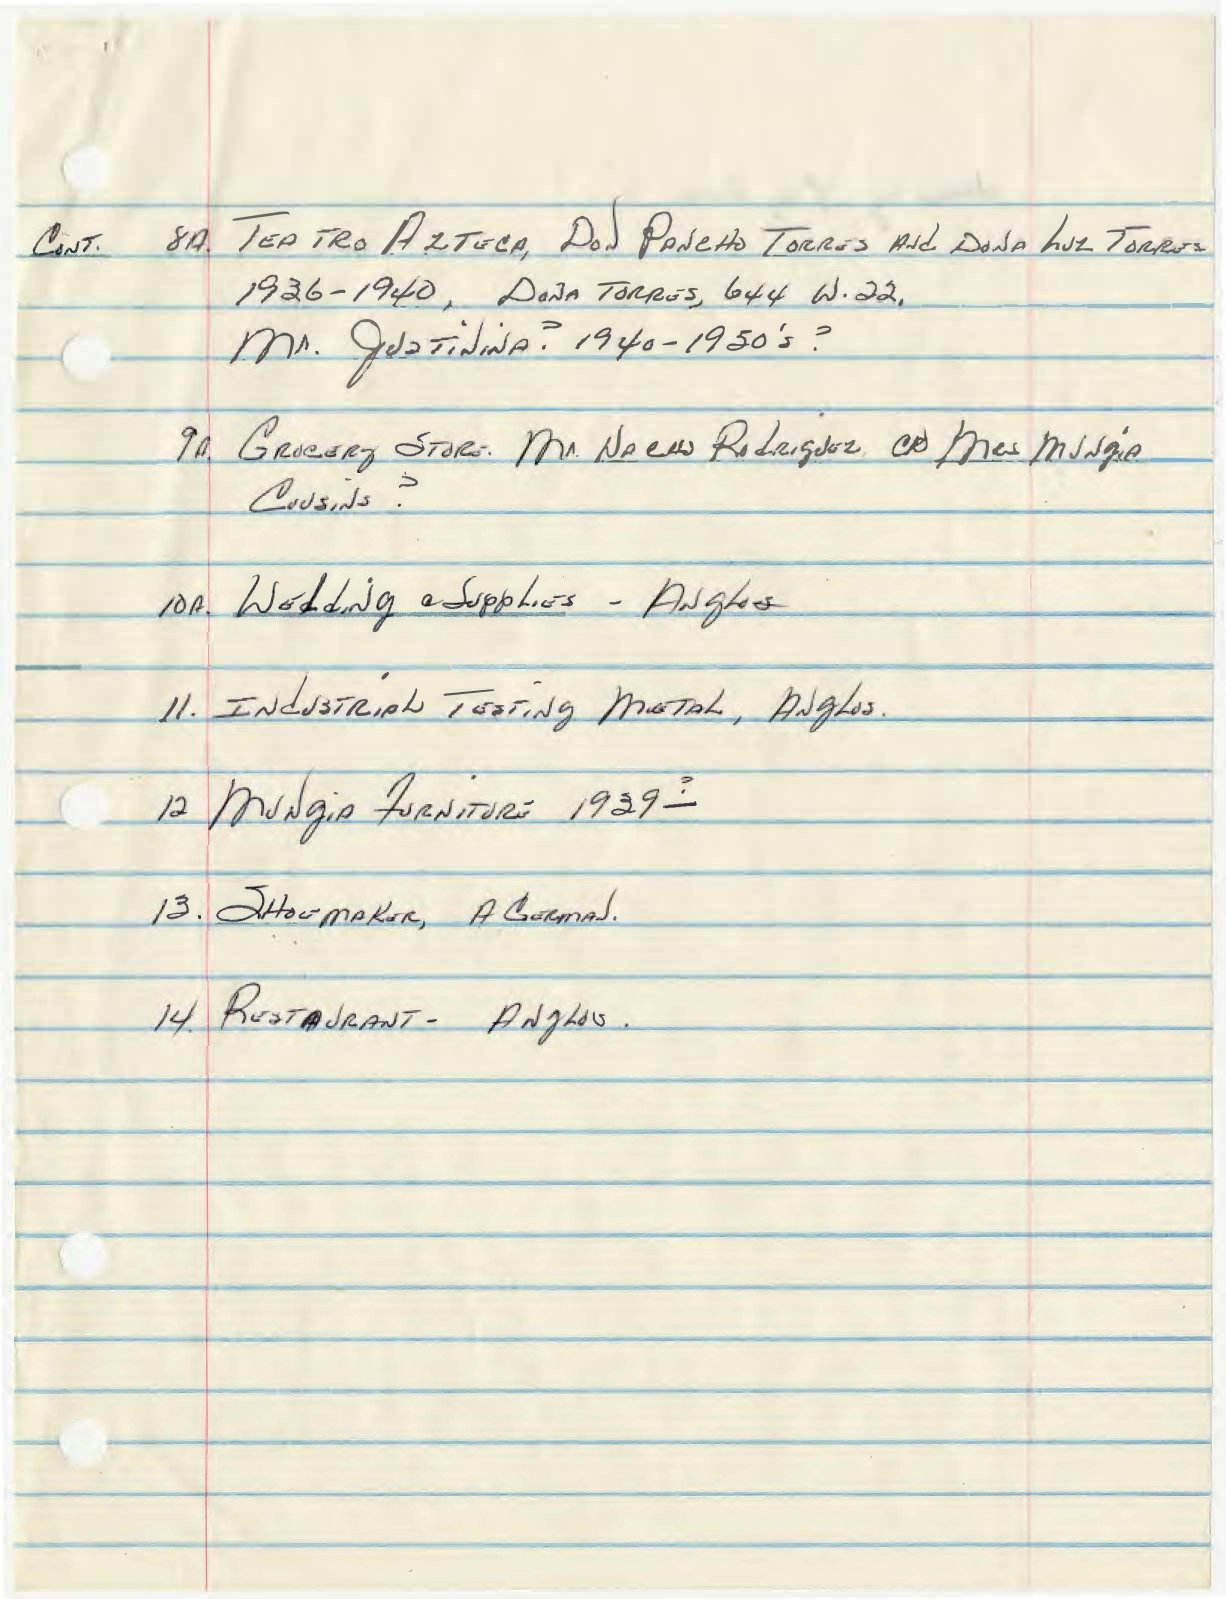 Cont. 8A. Teatro Azteca, Don Pancho Torres and Dona Luz Torres
1936-1940, Doña Torres, 644 W. 22.
Mr. Justinina? 1940-1950's?
9A. Grocery Store. Mr. Nacho Rodriguez. Mungia
Cousins?
10A. Wedding Supplies - Anglos
11. Industrial Testing Metal, Anglos.
12 Mungia Furniture 1939-?
13. Shoemaker, A German.
14. Restaurant- Anglos.